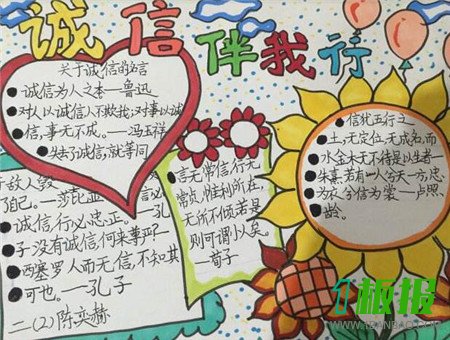 诚信伴我行
关于诚信的名言
诚信为人之本——鲁迅
对人以诚信人不欺我;对事以诚
信,事无不成。——冯玉祥
失去了诚信,就等同
于敌人毁
了自己。——莎士比亚
言必
诚信,行必忠正。——孔
子 没有诚信,何来尊严?——
西塞罗 人而无信,不知其
可也。——孔子
二(2)陈奕赫
言无常信,行无
常贞,惟利所在,
无所不倾,若是
则可谓小人矣。
——荀子
信犹五行之
土,无定位,无成名,而
水金木无不待是以生者——
朱熹
板报